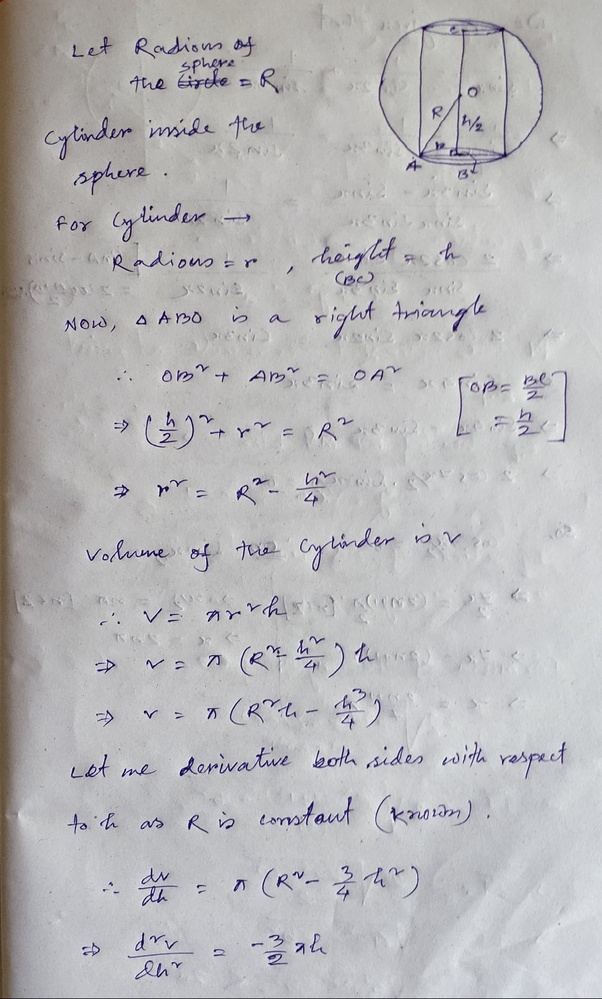 Let Radious of
the sphere = R
Cylinder inside the
sphere.
For Cylinder →
Radious = r , height = h
(BC)
Now, Δ ABO is a right triangle
∴ OB² + AB² = OA²
[OB = BC/2
= h/2]
⇒ (h/2)² + r² = R²
⇒ r² = R² - h²/4
Volume of the Cylinder is v
∴ V = πr²h
⇒ v = π (R² - h²/4) h
⇒ v = π (R²h - h³/4)
Let me derivative both sides with respect
to h as R is constant (known).
∴ dv/dh = π (R² - 3/4 h²)
⇒ d²v/dh² = -3/2 πh
C
O
R
h/2
r
A
B